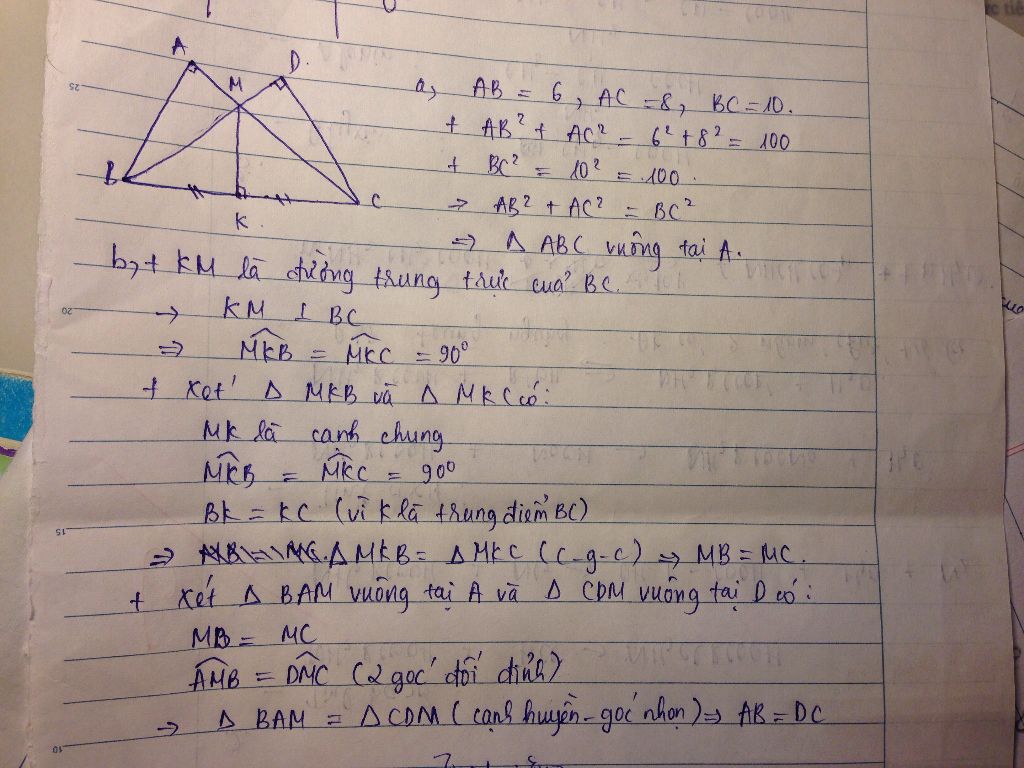 A
D.
M
B
C
K.
a, AB = 6, AC = 8, BC = 10.
+ AB² + AC² = 6² + 8² = 100
+ BC² = 10² = 100.
⇒ AB² + AC² = BC²
⇒ Δ ABC vuông tại A.
b, + KM là đường trung trực của BC.
→ KM ⊥ BC
⇒ \widehat{MKB} = \widehat{MKC} = 90⁰
+ Xét Δ MKB và Δ MKC có:
MK là cạnh chung
\widehat{MKB} = \widehat{MKC} = 90⁰
BK = KC (vì K là trung điểm BC)
⇒ Δ MKB = Δ MKC (c-g-c) ⇒ MB = MC.
+ Xét Δ BAM vuông tại A và Δ CDM vuông tại D có:
MB = MC
\widehat{AMB} = \widehat{DMC} (2 góc đối đỉnh)
→ Δ BAM = Δ CDM (cạnh huyền - góc nhọn) ⇒ AB = DC
25
20
15
10